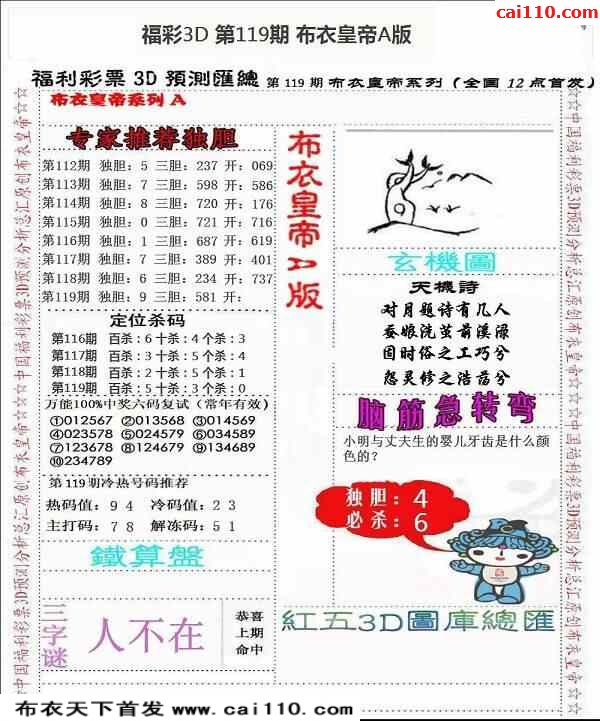 cai110.com
福彩3D 第119期 布衣皇帝A版
福利彩票 3D 預測匯總 第 119 期 布衣皇帝系列 (全国 12 点首发)
布衣皇帝系列 A
专家推荐独胆
第112期 独胆: 5 三胆: 237 开: 069
第113期 独胆: 7 三胆: 598 开: 586
第114期 独胆: 8 三胆: 720 开: 176
第115期 独胆: 0 三胆: 721 开: 716
第116期 独胆: 1 三胆: 687 开: 619
第117期 独胆: 7 三胆: 389 开: 401
第118期 独胆: 6 三胆: 234 开: 737
第119期 独胆: 9 三胆: 581 开:
定位杀码
第116期 百杀: 6 十杀: 4 个杀: 3
第117期 百杀: 3 十杀: 5 个杀: 4
第118期 百杀: 2 十杀: 5 个杀: 1
第119期 百杀: 5 十杀: 3 个杀: 0
万能100%中奖六码复试 (常年有效)
①012567 ②013568 ③014569
④023578 ⑤024579 ⑥034589
⑦123678 ⑧124679 ⑨134689
⑩234789
第119期冷热号码推荐
热码值: 9 4 冷码值: 2 3
主打码: 7 8 解冻码: 5 1
鐵算盤
三字谜
人不在
恭喜
上期
命中
布衣皇帝A版
玄機圖
天機詩
对月题诗有几人
蚕娘洗茧前溪渌
固时俗之工巧兮
怨灵修之浩荡兮
脑筋急转弯
小明与丈夫生的婴儿牙齿是什么颜
色的?
独胆: 4
必杀: 6
紅五3D圖庫總匯
☆☆中国福利彩票3D预测分析总汇原创布衣皇帝☆☆
☆☆中国福利彩票3D预测分析总汇原创布衣皇帝☆☆
布衣天下首发 www.cai110.com